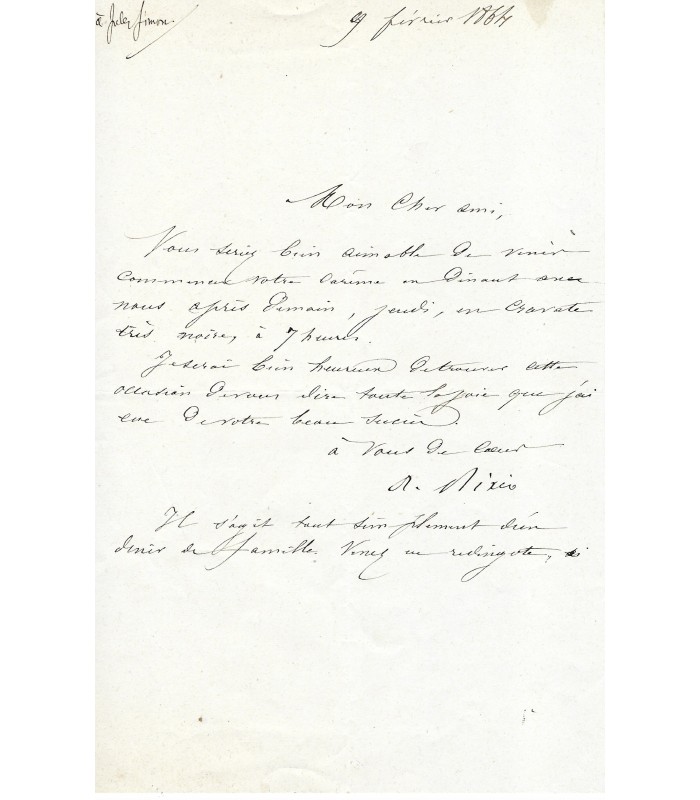 à Jules Simon.
9 février 1864
Mon Cher ami,
Vous seriez bien aimable de venir
commencer votre Carême en Dinant avec
nous après Demain, jeudi, en Cravate
très noire, à 7 heures.
Je serai bien heureux de trouver cette
occasion de vous dire toute la joie que j'ai
eue De votre beau succès.
à Vous De Cœur
A.
Il s'agit tout simplement d'un
diner de famille. Venez en redingote,